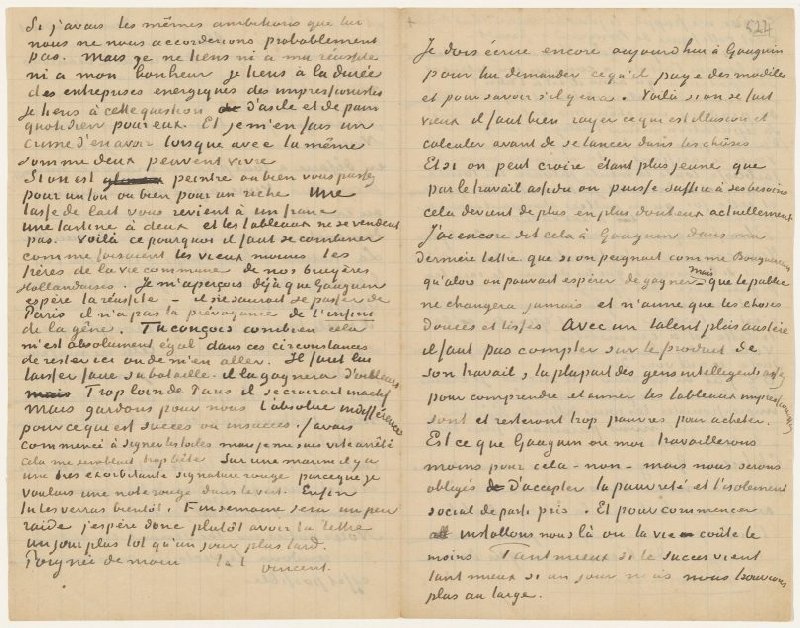 Si j'avais les mêmes ambitions que lui
nous ne nous accorderions probablement
pas. Mais je ne tiens ni a ma réussite
ni a mon bonheur je tiens à la durée
des entreprises energiques des impressionistes
je tiens à cette question de d'asile et de pain
quotidien pour eux. Et je m'en fais un
crime d'en avoir lorsque avec la même
somme deux peuvent vivre
Si on est peintre ou bien vous passez
pour un fou ou bien pour un riche une
tasse de lait vous revient à un franc
une tartine à deux et les tableaux ne se vendent
pas. Voilà ce pourquoi il faut se combiner
comme faisaient les vieux moines les
frères de la vie commune de nos bruyères
Hollandaises. Je m'aperçois déjà que Gauguin
espère la réussite – il ne saurait se passer de
Paris il n'a pas la prévoyance de l'infini
de la gêne. Tu conçois combien cela
m'est absolument égal dans ces circonstances
de rester ici ou de m'en aller. Il faut lui
laisser faire sa bataille. il la gagnera d'ailleurs
mais Trop loin de Paris il se croirait inactif
Mais gardons pour nous l'absolue indifférence
pour ce qui est succès ou insuccès. J'avais
commencé à signer les toiles mais je me suis vite arrêté
cela me semblait trop bête. Sur une marine il y a
une très exorbitante signature rouge parceque je
voulais une note rouge dans le vert. Enfin
tu les verras bientôt. Fin semaine sera un peu
raide j'espère donc plutôt avoir ta lettre
un jour plus tot qu'un jour plus tard.
Poignée de main t. à t.
Vincent.
527
Je dois écrire encore aujourd'hui à Gauguin
pour lui demander ce qu'il paye des modèles
et pour savoir s'il y en a. Voilà si on se fait
vieux il faut bien rayer ce qui est illusion et
calculer avant de se lancer dans les choses
Et si on peut croire étant plus jeune que
par le travail assidu on puisse suffire à ses besoins
cela devient de plus en plus douteux actuellement.
J'ai encore dit cela à Gauguin dans ma
dernière lettre que si on peignait comme Bouguereau
qu'alors on pouvait espérer de gagner – mais que le public
ne changera jamais et n'aime que les choses
douces et lisses. Avec un talent plus austère
il faut pas compter sur le produit de
son travail, la plupart des gens intelligents assez
pour comprendre et aimer les tableaux impressionistes
sont et resteront trop pauvres pour acheter.
Est ce que Gauguin ou moi travaillerons
moins pour cela – non – mais nous serons
obligés de d'accepter la pauvreté et l'isolement
social de parti pris. Et pour commencer
installons nous là où la vie coûte le
moins. Tant mieux si le succès vient
tant mieux si un jour nous trouvions
plus au large.